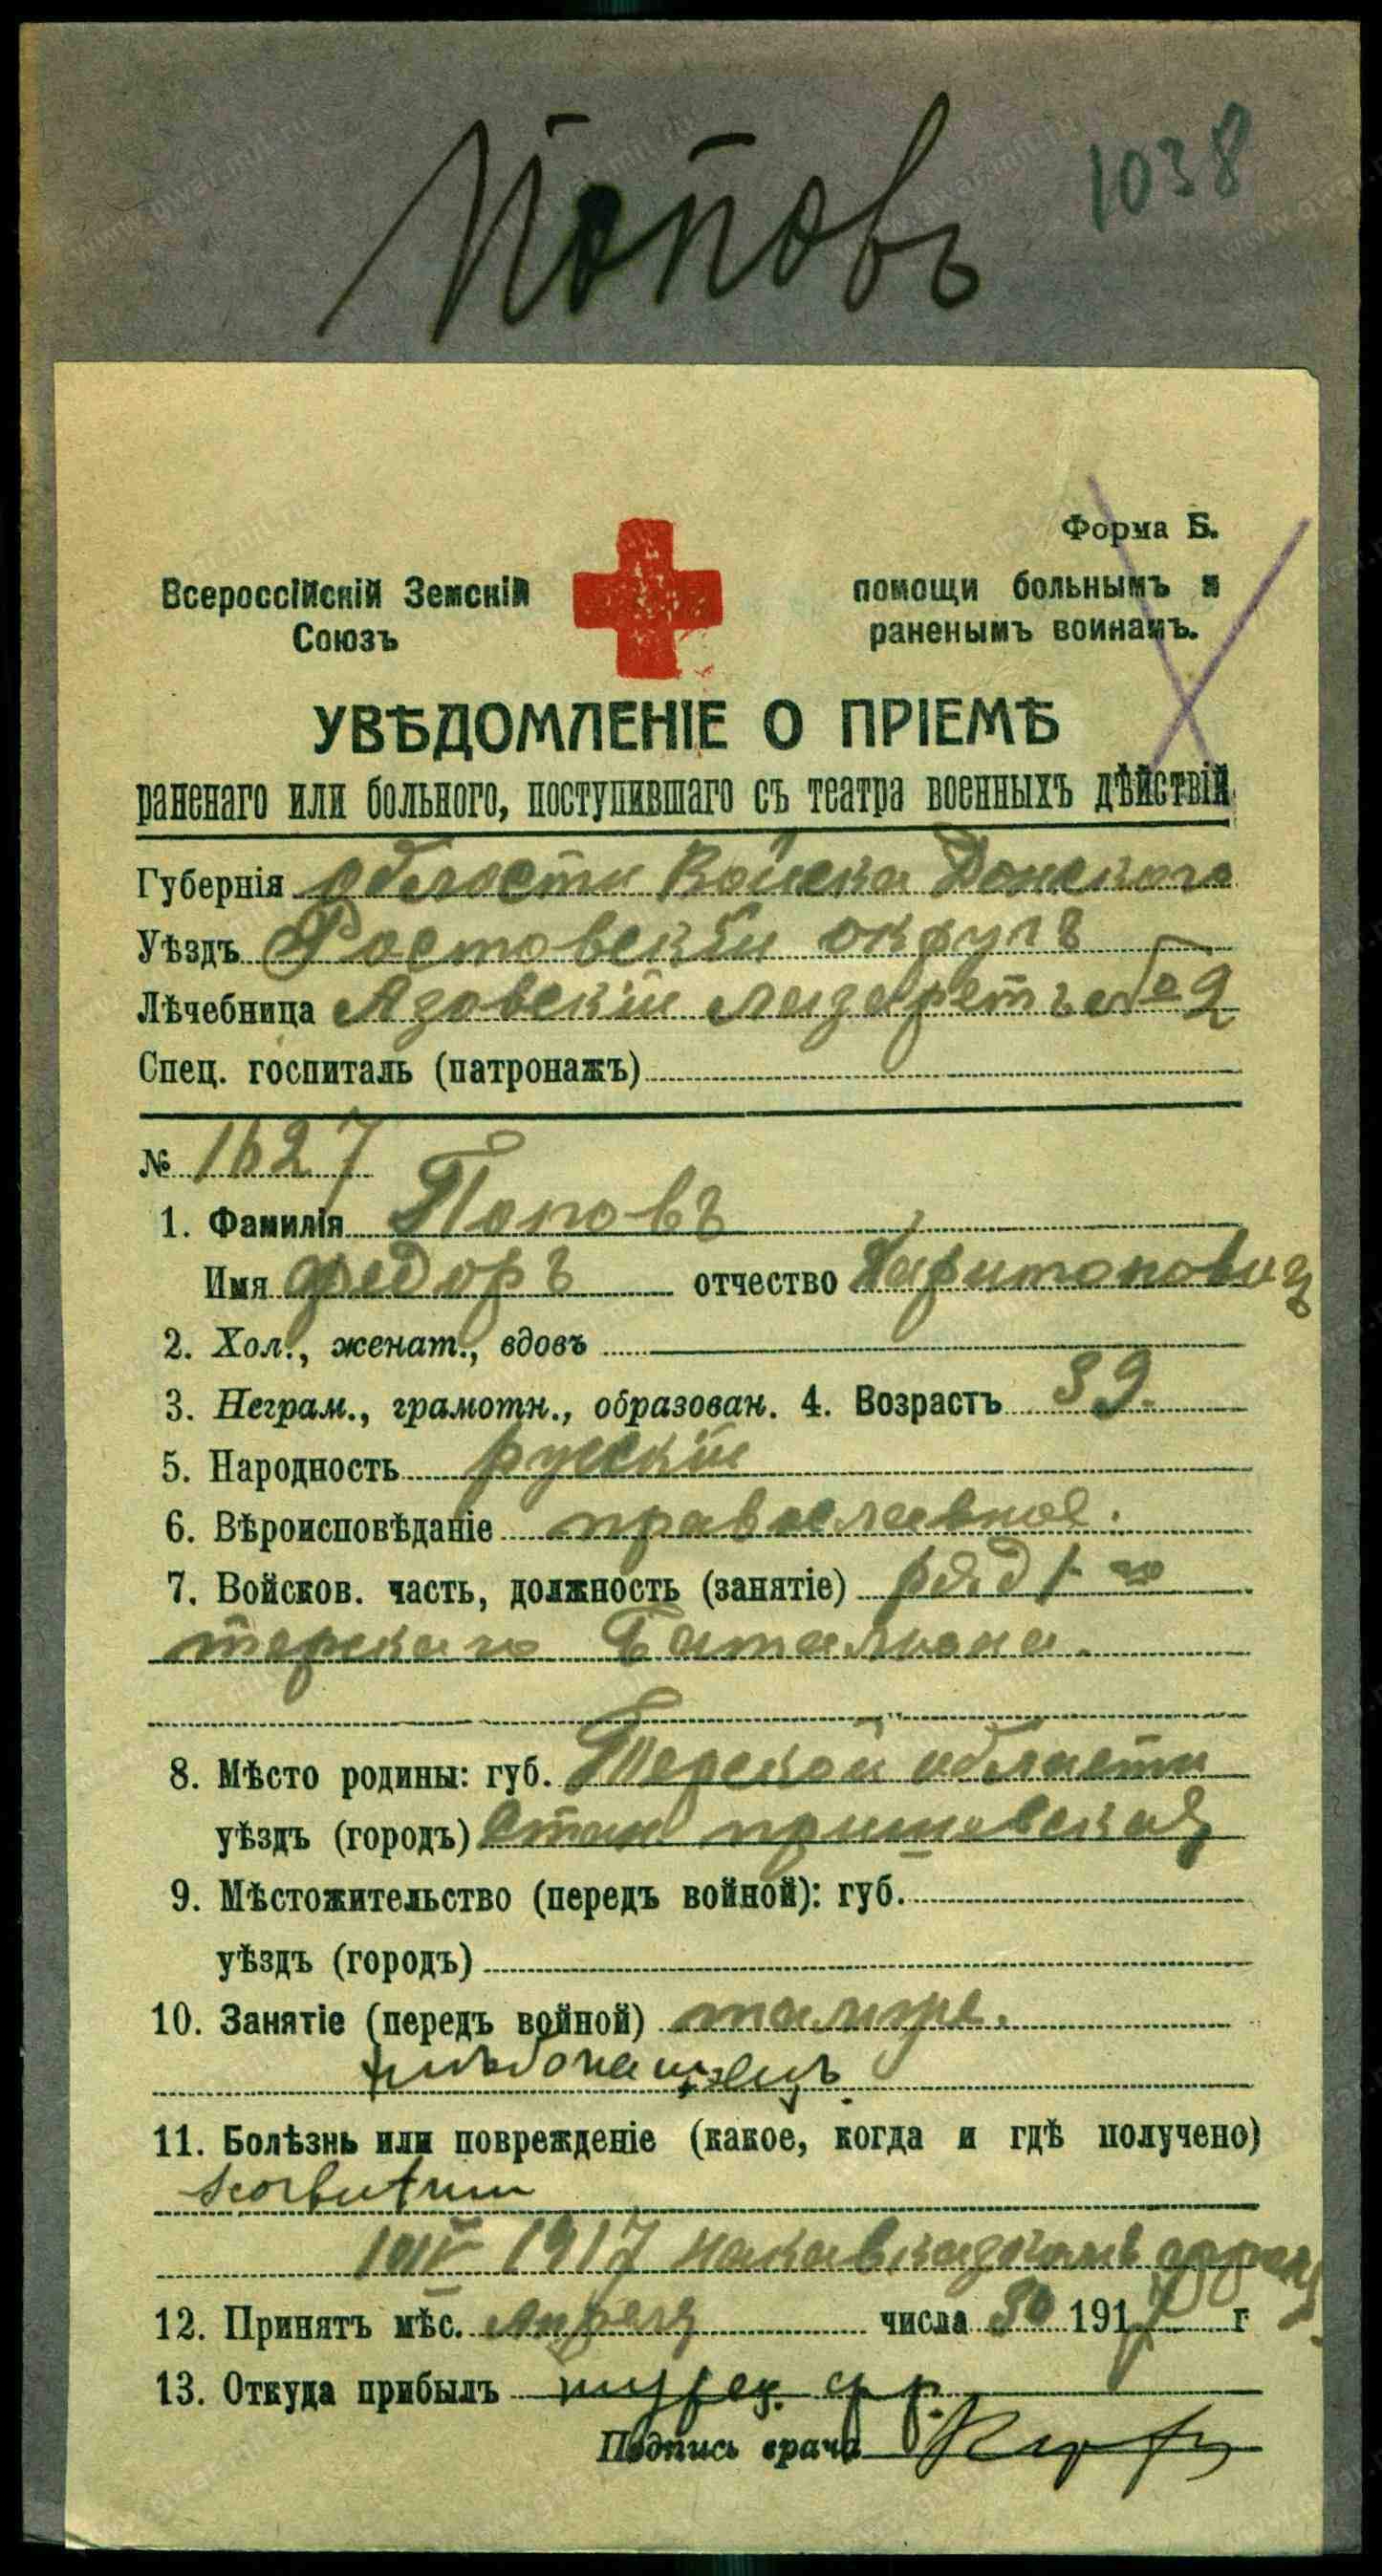 Поповъ
1038
Форма Б.
Всероссійскій Земскій
Союзъ
помощи больнымъ и
раненымъ воинамъ.
УВѢДОМЛЕНІЕ О ПРІЕМѢ
раненаго или больного, поступившаго съ театра военныхъ дѣйствій
Губернія области Войска Донского
Уѣздъ Ростовскій округъ
Лѣчебница Азовскій лазаретъ № 2
Спец. госпиталь (патронажъ)
№ 1627
1. Фамилія Поповъ
Имя федоръ отчество Харитоновичъ
2. Хол., женат., вдовъ
3. Неграм., грамотн., образован. 4. Возрастъ 39.
5. Народность русскій
6. Вѣроисповѣданіе православное.
7. Войсков. часть, должность (занятіе) ряд 1-го
терскаго Баталиона.
8. Мѣсто родины: губ. Терской области
уѣздъ (городъ) Стан
9. Мѣстожительство (передъ войной): губ.
уѣздъ (городъ)
10. Занятіе (передъ войной)
хлѣбопашецъ.
11. Болѣзнь или поврежденіе (какое, когда и гдѣ получено)
scorbutum
1917 на кавказкомъ фронтѣ
12. Принятъ мѣс. Апреля числа 30 1917 г
13. Откуда прибылъ турец. фр.
Подпись врача